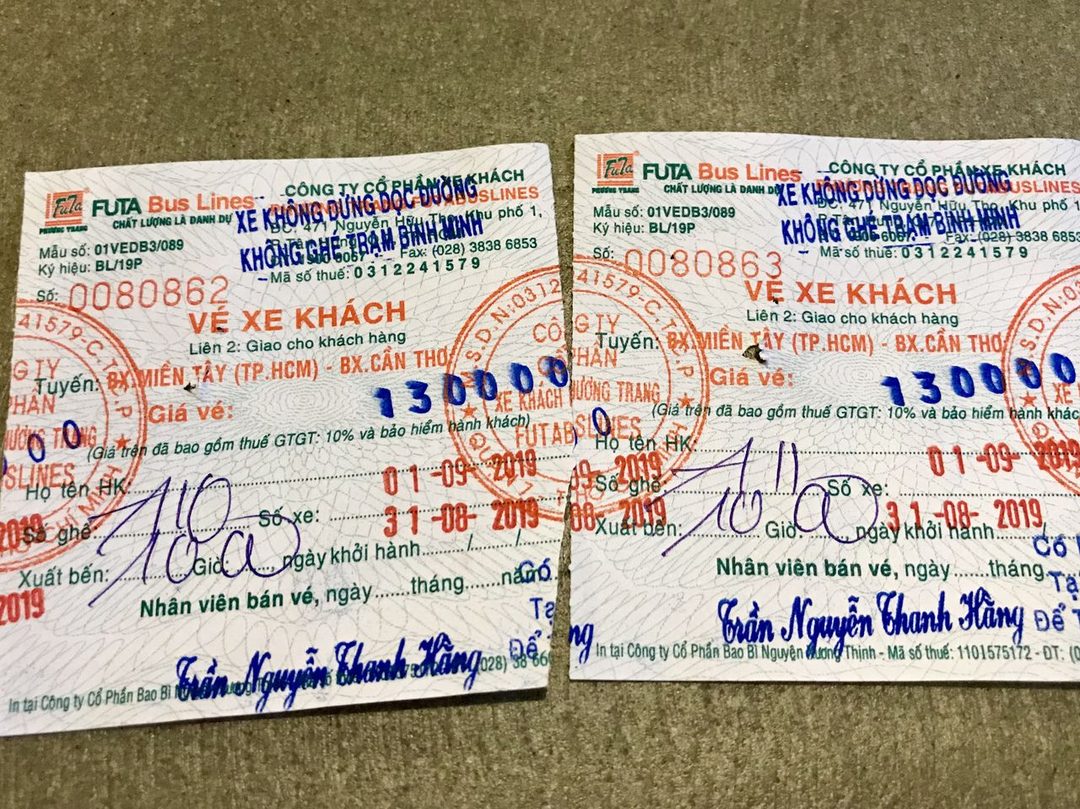 FuTa
PHƯƠNG TRANG
FUTA Bus Lines
CHẤT LƯỢNG LÀ DANH DỰ
CÔNG TY CỔ PHẦN XE KHÁCH
BUSLINES
XE KHÔNG DỪNG DỌC ĐƯỜNG
KHÔNG GHÉ TRẠM BÌNH MINH
ĐC: 471 Nguyễn Hữu Thọ, Khu phố 1,
Fax: (028) 3838 6853
Mã số thuế: 0312241579
Mẫu số: 01VEDB3/089
Ký hiệu: BL/19P
Số: 0080862
VÉ XE KHÁCH
Liên 2: Giao cho khách hàng
Tuyến: BX.MIỀN TÂY (TP.HCM) - BX.CẦN THƠ
Giá vé: 130000
(Giá trên đã bao gồm thuế GTGT: 10% và bảo hiểm hành khách)
Họ tên HK:
01-09-2019
Số ghế: Số xe:
31-08-2019
Xuất bến: 10 Giờ 00, ngày khởi hành / /
Nhân viên bán vé, ngày tháng năm
Trần Nguyễn Thanh Hằng
In tại Công ty Cổ Phần Bao Bì
FuTa
PHƯƠNG TRANG
FUTA Bus Lines
CHẤT LƯỢNG LÀ DANH DỰ
CÔNG TY CỔ PHẦN XE KHÁCH
BUSLINES
XE KHÔNG DỪNG DỌC ĐƯỜNG
KHÔNG GHÉ TRẠM BÌNH MINH
ĐC: 471 Nguyễn Hữu Thọ, Khu phố 1,
Fax: (028) 3838 6853
Mã số thuế: 0312241579
Mẫu số: 01VEDB3/089
Ký hiệu: BL/19P
Số: 0080863
VÉ XE KHÁCH
Liên 2: Giao cho khách hàng
Tuyến: BX.MIỀN TÂY (TP.HCM) - BX.CẦN THƠ
Giá vé: 130000
(Giá trên đã bao gồm thuế GTGT: 10% và bảo hiểm hành khách
Họ tên HK:
01-09-2019
Số ghế Số xe:
31-08-2019
Xuất bến: 10 Giờ 00 ngày khởi hành
Nhân viên bán vé, ngày tháng
Trần Nguyễn Thanh Hằng
In tại Công ty Cổ Phần Bao Bì Nguyên Dương Thịnh - Mã số thuế: 1101575172 - ĐT: